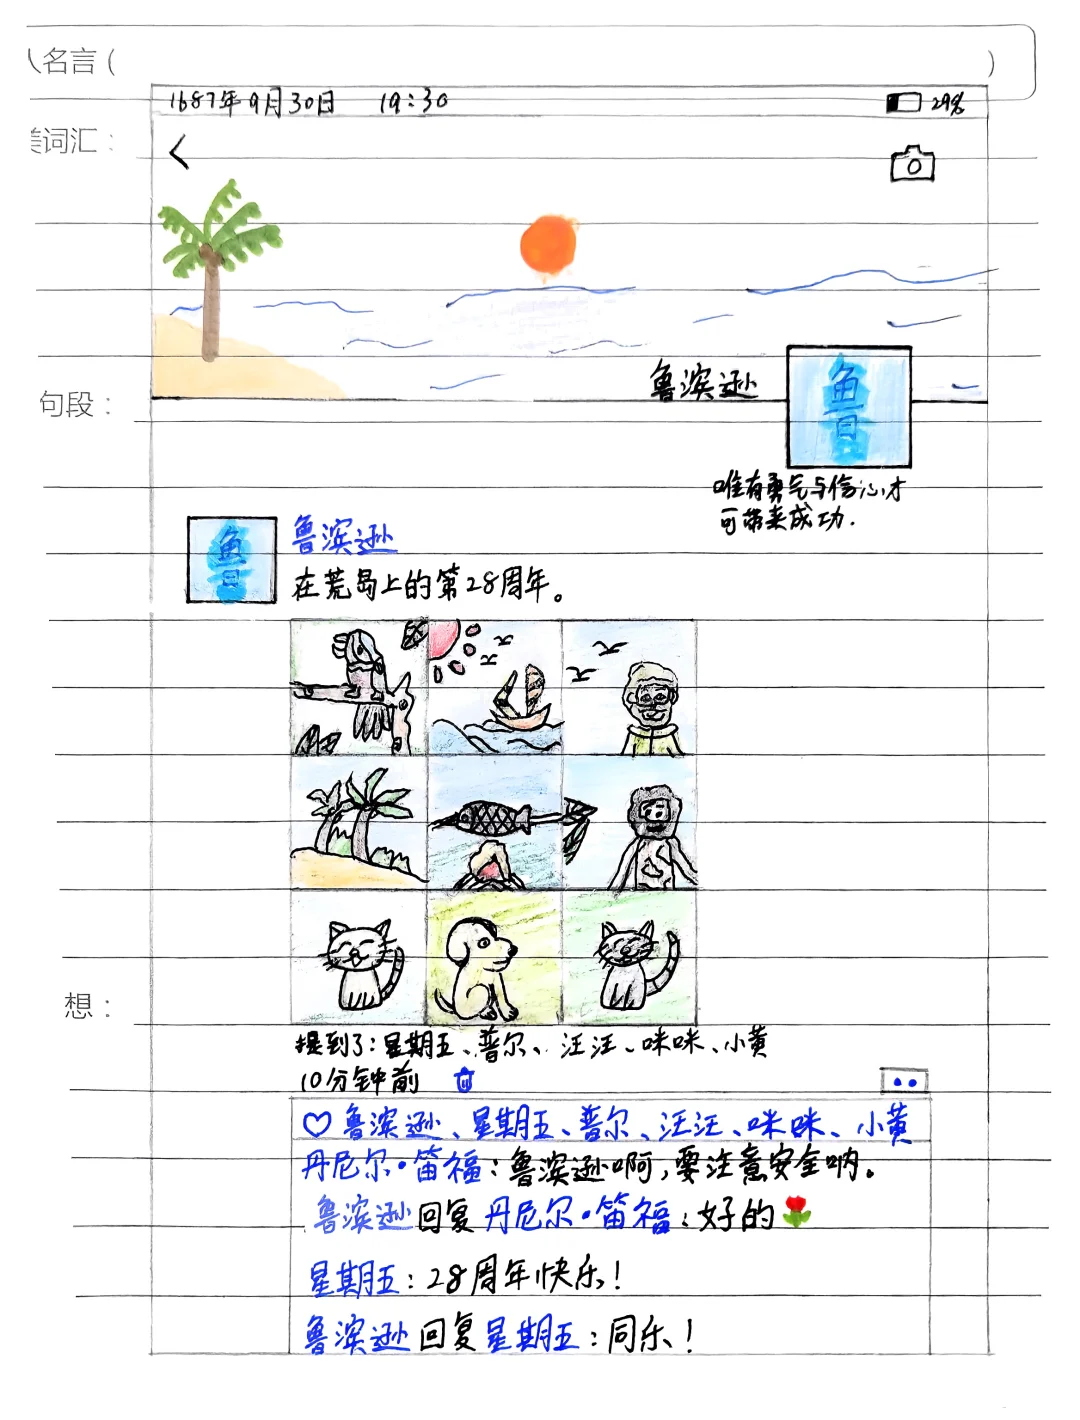 人名言（ ）
1687年9月30日 19:30 29%
美词汇：
句段：
鲁滨逊
鲁
唯有勇气与信心才
可带来成功.
鲁
鲁滨逊
在荒岛上的第28周年。
想：
提到了:星期五、普尔、汪汪、咪咪、小黄
10分钟前
鲁滨逊、星期五、普尔、汪汪、咪咪、小黄
丹尼尔·笛福:鲁滨逊啊,要注意安全呐。
鲁滨逊回复丹尼尔·笛福:好的
星期五:28周年快乐!
鲁滨逊回复星期五:同乐!